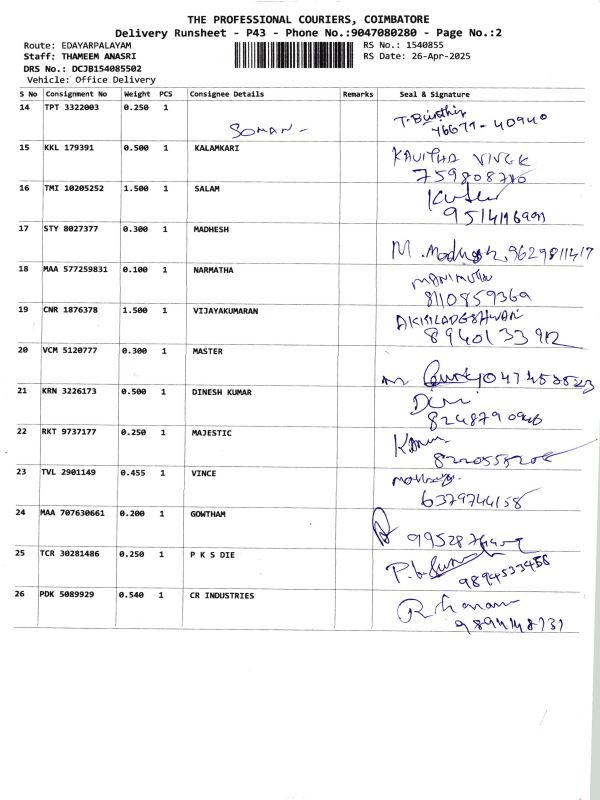 THE PROFESSIONAL COURIERS, COIMBATORE
Delivery Runsheet - P43 - Phone No.:9047080280 - Page No.:2
Route: EDAYARPALAYAM RS No.: 1540855
Staff: THAMEEM ANASRI RS Date: 26-Apr-2025
DRS No.: DCJB154085502
Vehicle: Office Delivery
S No Consignment No Weight PCS Consignee Details Remarks Seal & Signature
14 TPT 3322003 0.250 1
SOMAN-
76677-40940
15 KKL 179391 0.500 1 KALAMKARI KAVITHA VIVEK
16 TMI 10205252 1.500 1 SALAM
17 STY 8027377 0.300 1 MADHESH M. Madhesh, 9629811417
18 MAA 577259831 0.100 1 NARMATHA
8110859369
19 CNR 1876378 1.500 1 VIJAYAKUMARAN
8940133912
20 VCM 5120777 0.300 1 MASTER
21 KRN 3226173 0.500 1 DINESH KUMAR
22 RKT 9737177 0.250 1 MAJESTIC
23 TVL 2901149 0.455 1 VINCE
6379744158
24 MAA 707630661 0.200 1 GOWTHAM
25 TCR 30281486 0.250 1 P K S DIE
9894533456
26 PDK 5089929 0.540 1 CR INDUSTRIES
9894148731